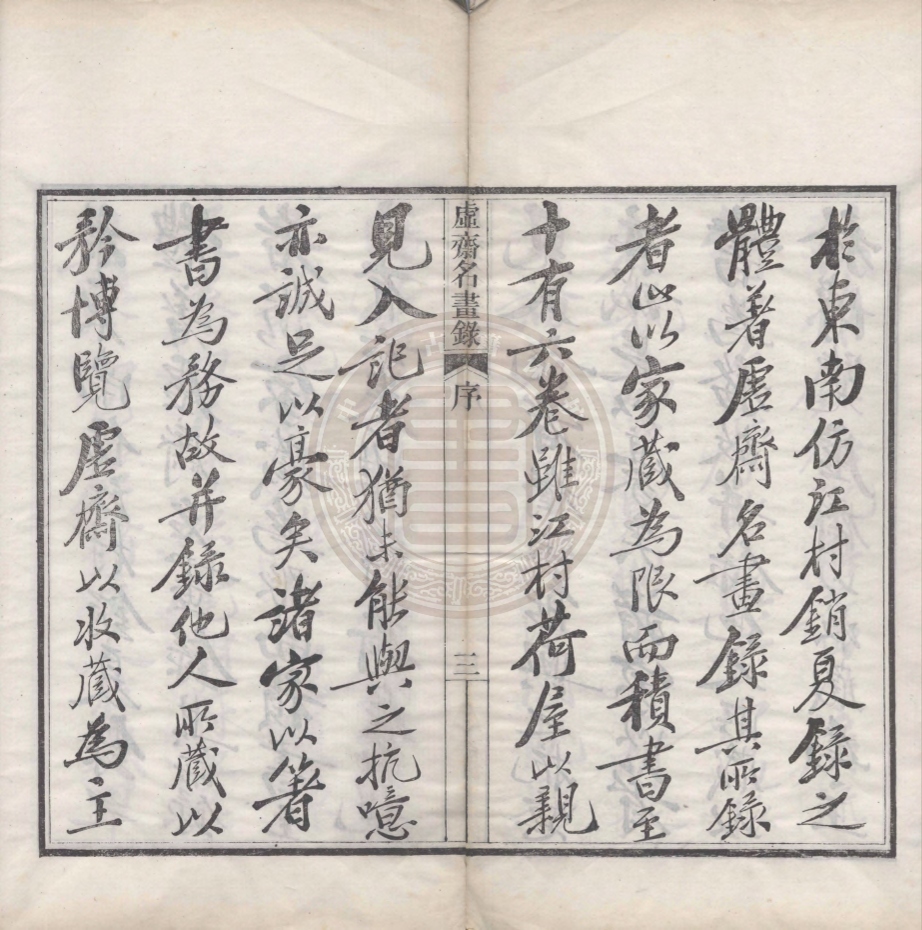 於東南仿江村銷夏錄之
體著虛齋名畫錄其所錄
者止以家藏為限而積書至
十有六卷雖江村荷屋以親
虛齋名畫錄 序 三
見入記者猶未能與之抗噫
亦誠足以豪矣諸家以著
書為務故并錄他人所藏以
矜博覽虛齋以收藏為主